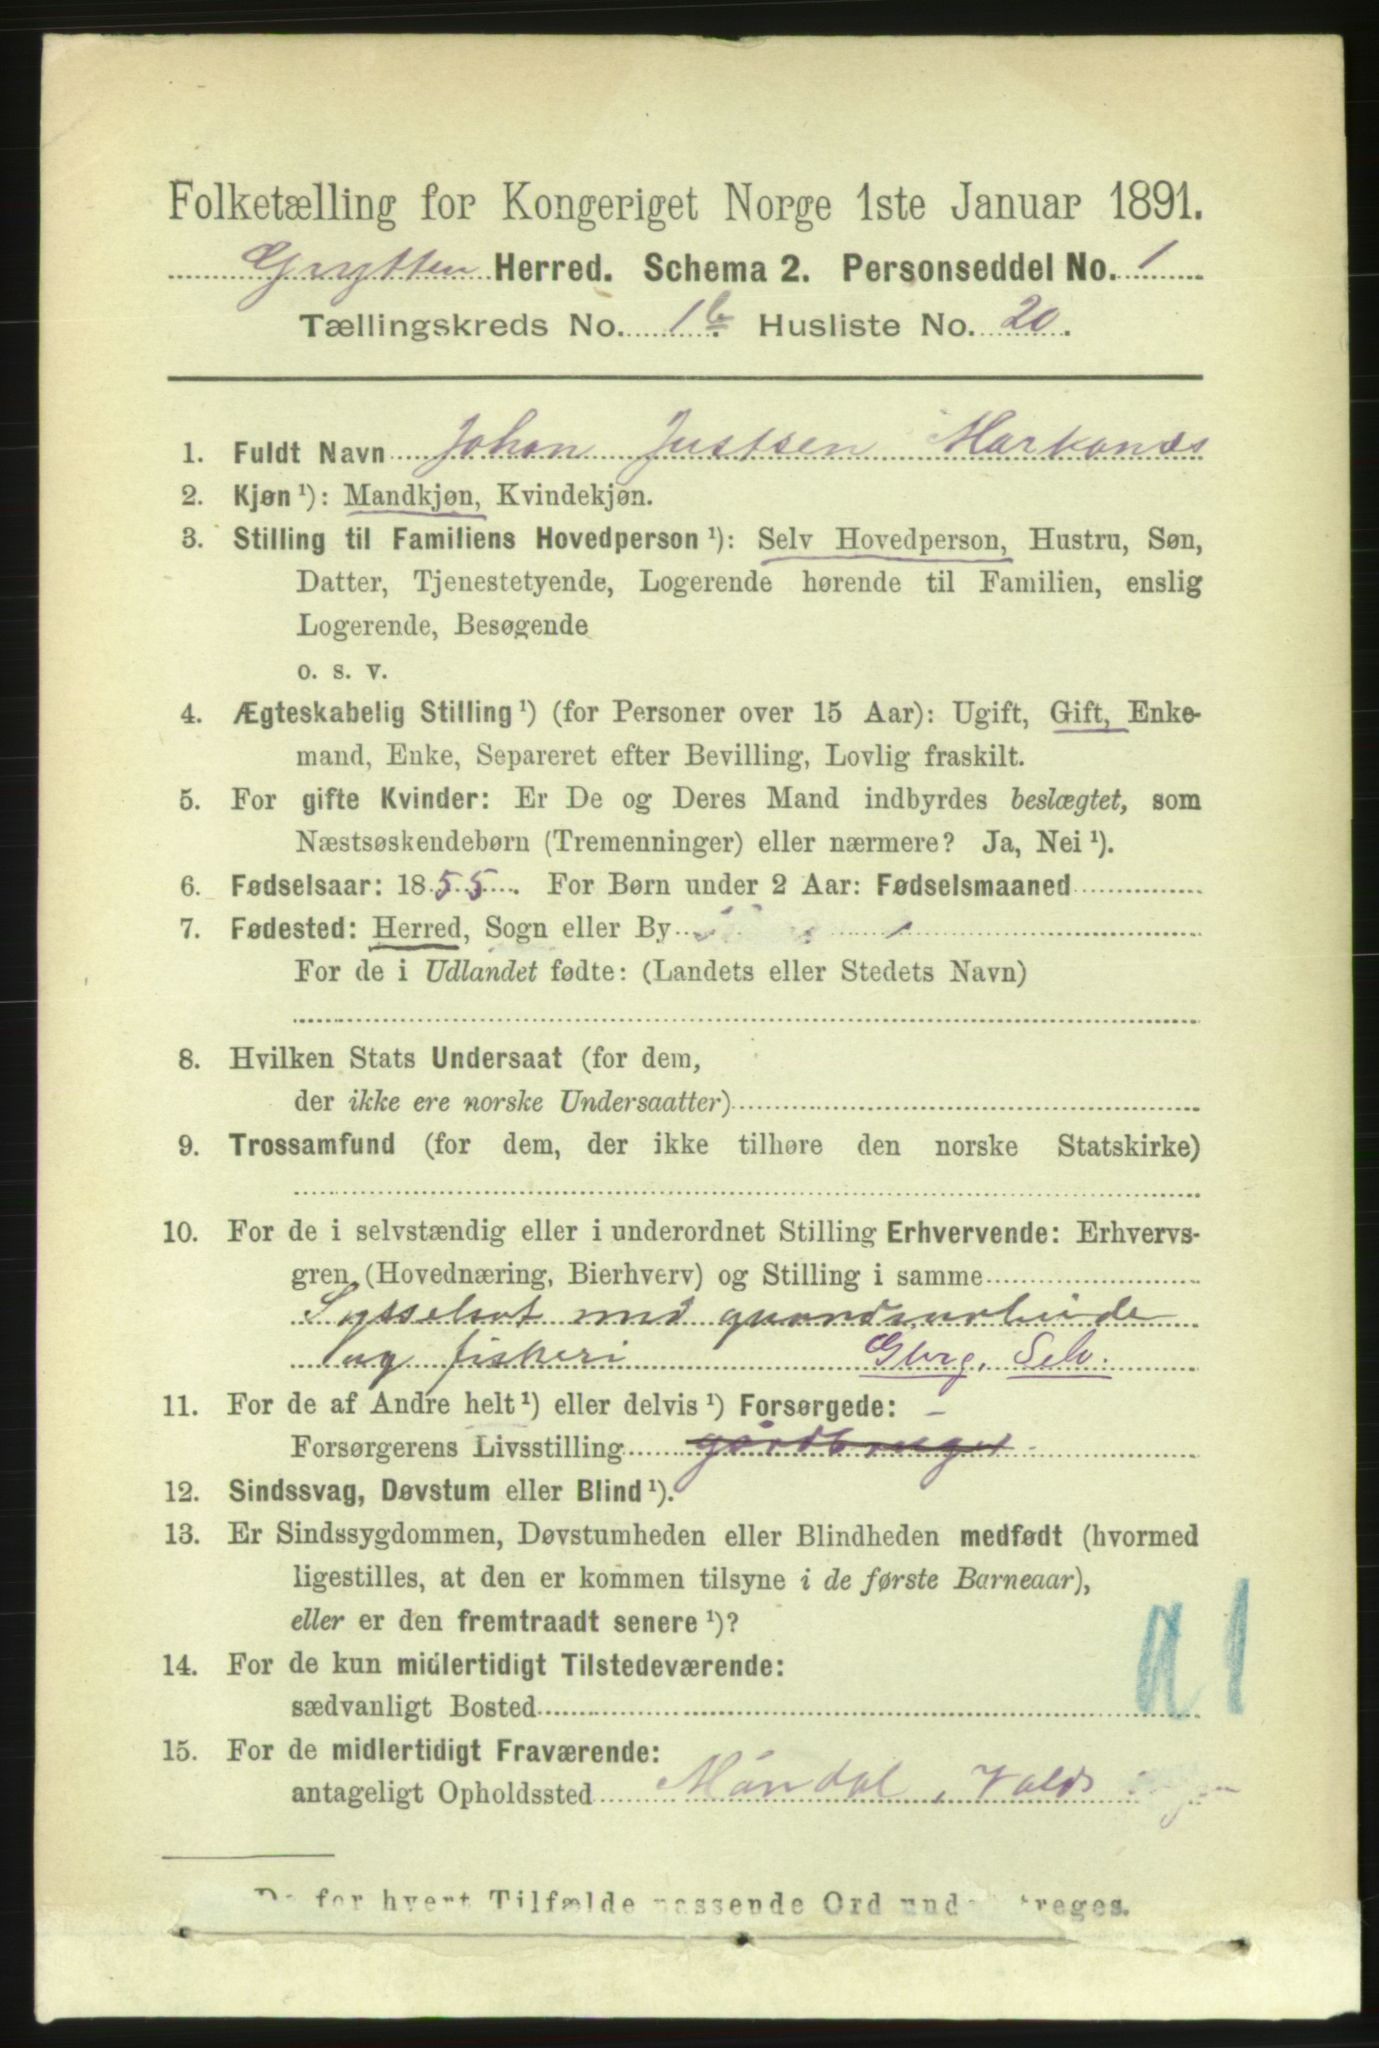 Folketælling for Kongeriget Norge 1ste Januar 1891.
Grytten Herred. Schema 2. Personseddel No. 1
Tællingskreds No. 1b Husliste No. 20.
1. Fuldt Navn Johan Justsen Markanæs
2. Kjøn ¹): Mandkjøn, Kvindekjøn.
3. Stilling til Familiens Hovedperson ¹): Selv Hovedperson, Hustru, Søn,
Datter, Tjenestetyende, Logerende hørende til Familien, enslig
Logerende, Besøgende
o. s. v.
4. Ægteskabelig Stilling ¹) (for Personer over 15 Aar): Ugift, Gift, Enke-
mand, Enke, Separeret efter Bevilling, Lovlig fraskilt.
5. For gifte Kvinder: Er De og Deres Mand indbyrdes beslægtet, som
Næstsøskendebørn (Tremenninger) eller nærmere? Ja, Nei ¹).
6. Fødselsaar: 1855. For Børn under 2 Aar: Fødselsmaaned
7. Fødested: Herred, Sogn eller By
For de i Udlandet fødte: (Landets eller Stedets Navn)
8. Hvilken Stats Undersaat (for dem,
der ikke ere norske Undersaatter)
9. Trossamfund (for dem, der ikke tilhøre den norske Statskirke)
10. For de i selvstændig eller i underordnet Stilling Erhvervende: Erhvervs-
gren (Hovednæring, Bierhverv) og Stilling i samme
Sysselsat med
og fiskeri Gbrg. Selv.
11. For de af Andre helt ¹) eller delvis ¹) Forsørgede: -
Forsørgerens Livsstilling gårdbruger
12. Sindssvag, Døvstum eller Blind ¹).
13. Er Sindssygdommen, Døvstumheden eller Blindheden medfødt (hvormed
ligestilles, at den er kommen tilsyne i de første Barneaar),
eller er den fremtraadt senere ¹)?
14. For de kun midlertidigt Tilstedeværende:
sædvanligt Bosted
a1
15. For de midlertidigt Fraværende:
antageligt Opholdssted Måndal, Volds
De for hvert Tilfælde passende Ord und treges.